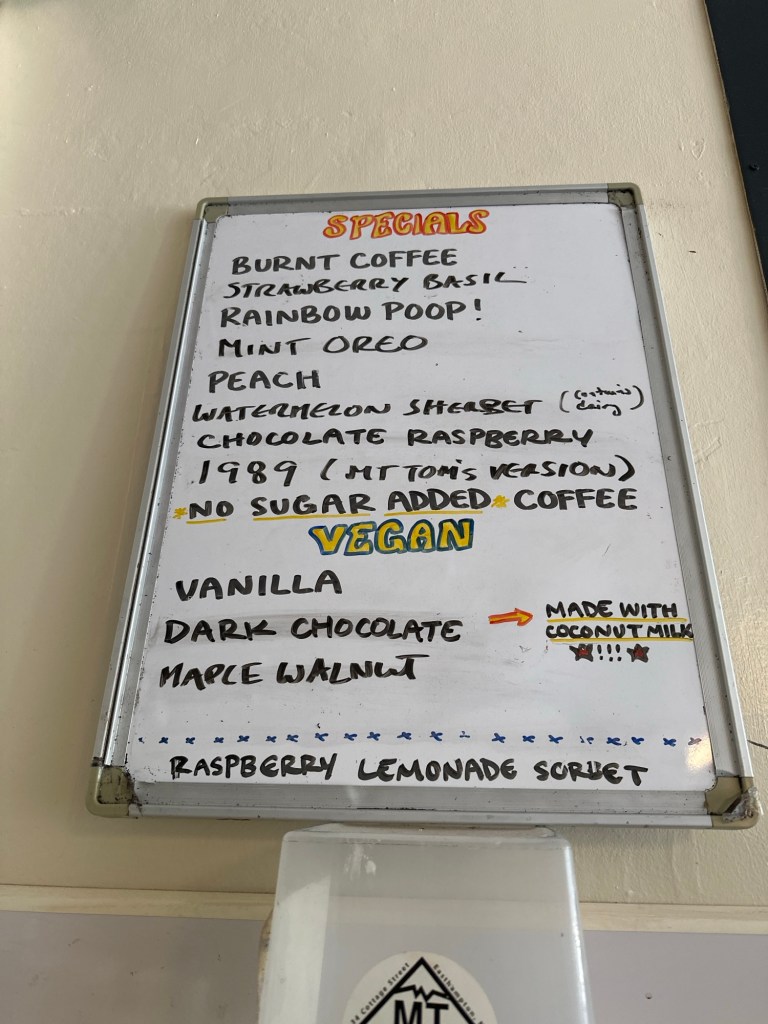 SPECIALS
BURNT COFFEE
STRAWBERRY BASIL
RAINBOW POOP!
MINT OREO
PEACH
WATERMELON SHERBET (contains dairy)
CHOCOLATE RASPBERRY
1989 (MT TOM'S VERSION)
*NO SUGAR ADDED* COFFEE
VEGAN
VANILLA
DARK CHOCOLATE → MADE WITH
COCONUT MILK
★!!!★
MAPLE WALNUT
RASPBERRY LEMONADE SORBET
34 Cottage Street Easthampton,
MT